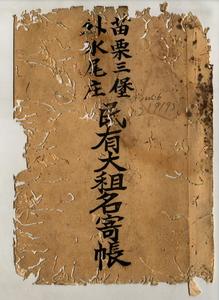 苗栗三堡
外水尾庄
民有大租名寄帳